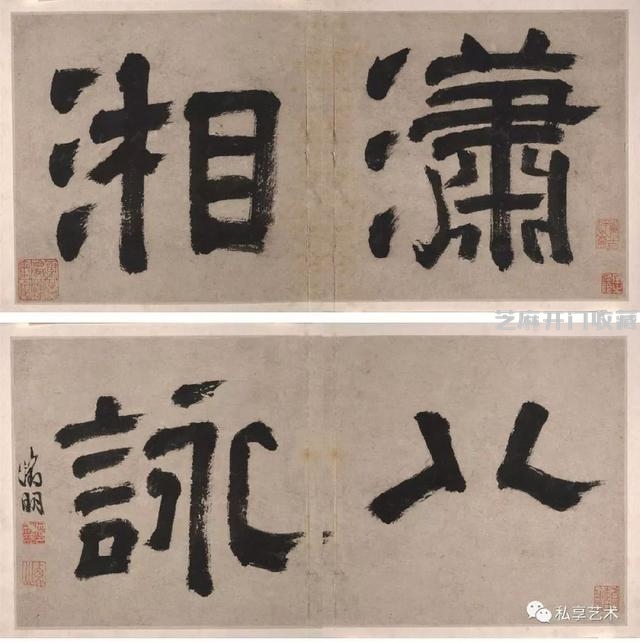 瀟湘
芝麻开门收藏
八詠
徵明
私享艺术